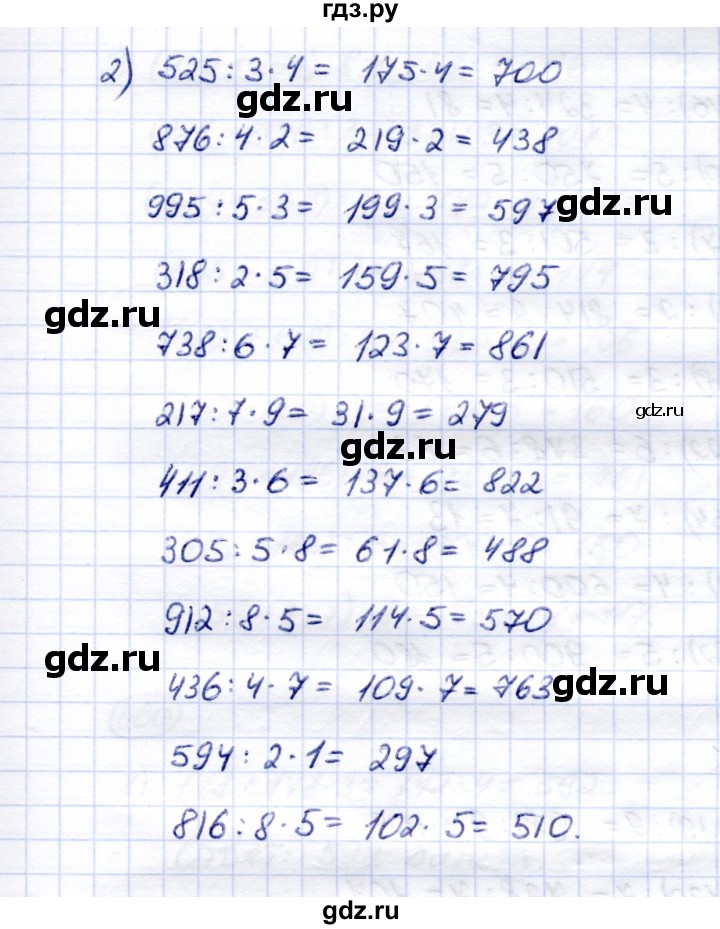 гдз.ру
2) 525 : 3 · 4 = 175 · 4 = 700
gdz.ru
876 : 4 · 2 = 219 · 2 = 438
995 : 5 · 3 = 199 · 3 = 597
gdz.ru
318 : 2 · 5 = 159 · 5 = 795
gdz.ru
738 : 6 · 7 = 123 · 7 = 861
217 : 7 · 9 = 31 · 9 = 279
gdz.ru
gdz.ru
411 : 3 · 6 = 137 · 6 = 822
305 : 5 · 8 = 61 · 8 = 488
912 : 8 · 5 = 114 · 5 = 570
gdz.ru
436 : 4 · 7 = 109 · 7 = 763
gdz.ru
594 : 2 · 1 = 297
816 : 8 · 5 = 102 · 5 = 510.
gdz.ru